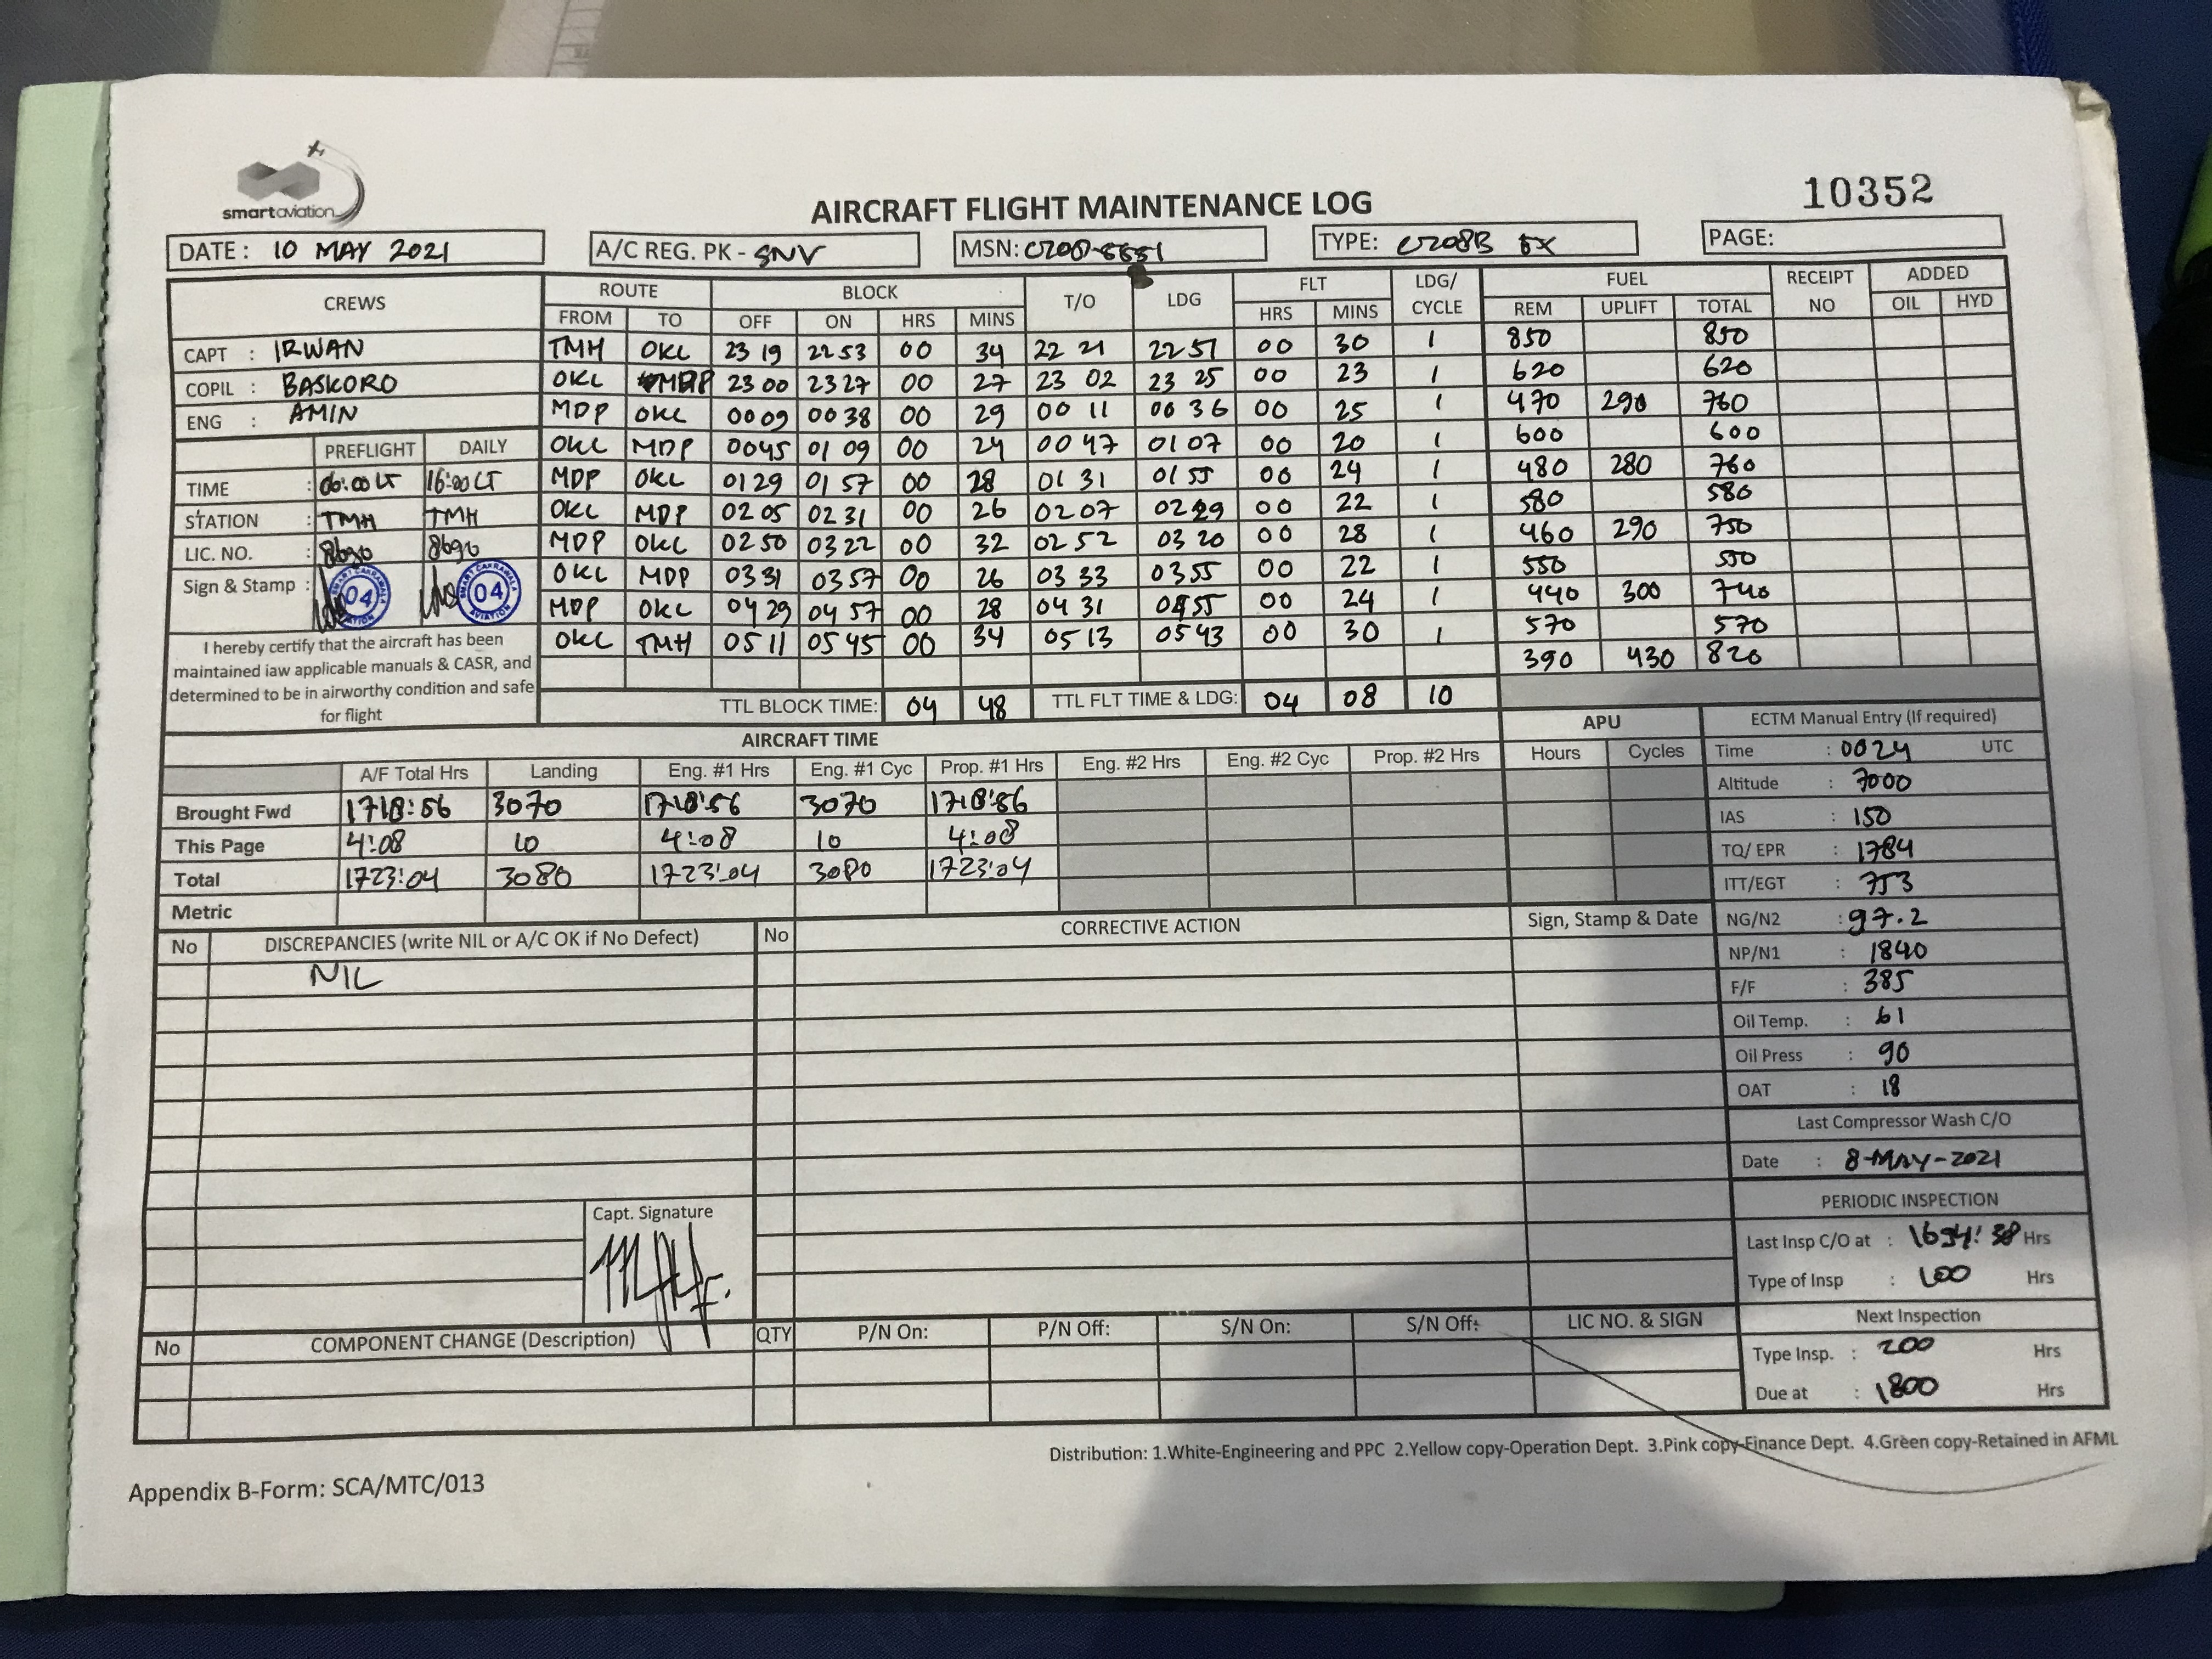 smartaviation
10352
AIRCRAFT FLIGHT MAINTENANCE LOG
DATE : 10 MAY 2021 A/C REG. PK - SNV MSN: TYPE: C208B EX PAGE:
CREWS ROUTE BLOCK T/O LDG FLT LDG/ CYCLE FUEL RECEIPT NO ADDED
FROM TO OFF ON HRS MINS HRS MINS REM UPLIFT TOTAL OIL HYD
CAPT : IRWAN TMH OKL 23 19 22 53 00 34 22 21 22 51 00 30 1 850 850
COPIL : BASKORO OKL MDP 23 00 23 27 00 27 23 02 23 25 00 23 1 620 620
ENG : AMIN MDP OKL 00 09 00 38 00 29 00 11 00 36 00 25 1 470 290 760
PREFLIGHT DAILY OKL MDP 00 45 01 09 00 24 00 47 01 07 00 20 1 600 600
TIME : 06:00 LT 16:00 LT MDP OKL 01 29 01 57 00 28 01 31 01 55 00 24 1 480 280 760
STATION : TMH TMH OKL MDP 02 05 02 31 00 26 02 07 02 29 00 22 1 580 580
LIC. NO. : 8690 8690 MDP OKL 02 50 03 22 00 32 02 52 03 20 00 28 1 460 290 750
Sign & Stamp : 04 04 OKL MDP 03 31 03 57 00 26 03 33 03 55 00 22 1 550 550
MDP OKL 04 29 04 57 00 28 04 31 04 55 00 24 1 440 300 740
OKL TMH 05 11 05 45 00 34 05 13 05 43 00 30 1 570 570
390 430 820
I hereby certify that the aircraft has been
maintained iaw applicable manuals & CASR, and
determined to be in airworthy condition and safe
for flight
TTL BLOCK TIME: 04 48 TTL FLT TIME & LDG: 04 08 10
AIRCRAFT TIME APU ECTM Manual Entry (If required)
A/F Total Hrs Landing Eng. #1 Hrs Eng. #1 Cyc Prop. #1 Hrs Eng. #2 Hrs Eng. #2 Cyc Prop. #2 Hrs Hours Cycles
Brought Fwd 1718:56 3070 1718:56 3070 1718:56
This Page 4:08 10 4:08 10 4:08
Total 1723:04 3080 1723:04 3080 1723:04
Metric
Time : 0024 UTC
Altitude : 7000
IAS : 150
TQ/ EPR : 1784
ITT/EGT : 753
NG/N2 : 97.2
NP/N1 : 1840
F/F : 385
Oil Temp. : 61
Oil Press : 90
OAT : 18
Last Compressor Wash C/O
Date : 8-MAY-2021
PERIODIC INSPECTION
Last Insp C/O at : 1694:38 Hrs
Type of Insp : 100 Hrs
Next Inspection
Type Insp. : 200 Hrs
Due at : 1800 Hrs
No DISCREPANCIES (write NIL or A/C OK if No Defect) No CORRECTIVE ACTION Sign, Stamp & Date
NIL
Capt. Signature
No COMPONENT CHANGE (Description) QTY P/N On: P/N Off: S/N On: S/N Off: LIC NO. & SIGN
Distribution: 1.White-Engineering and PPC 2.Yellow copy-Operation Dept. 3.Pink copy-Finance Dept. 4.Green copy-Retained in AFML
Appendix B-Form: SCA/MTC/013